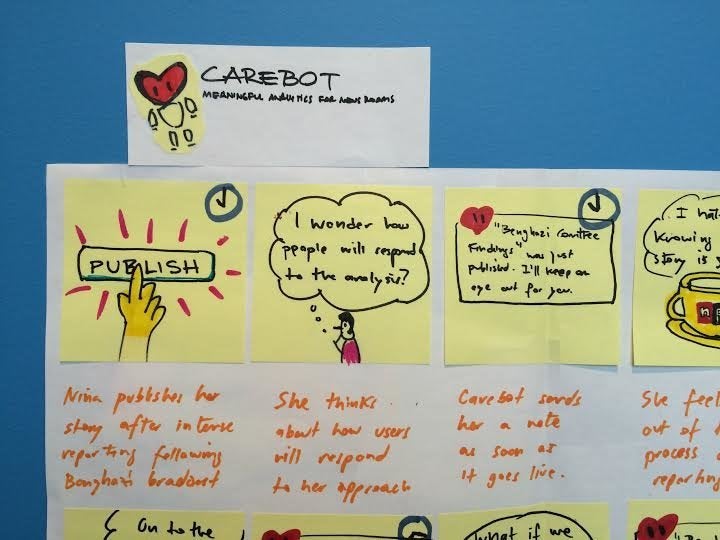 CAREBOT
MEANINGFUL ANALYTICS FOR NEWS ROOMS
PUBLISH
Nina publishes her
story after intense
reporting following
Benghazi
I wonder how
people will respond
to the analysis?
She thinks
about how users
will respond
to her approach
"Benghazi Comittee
Findings" was just
published. I'll keep an
eye out for you.
Carebot sends
her a note
as soon as
it goes live.
I hat
knowing
story is
n
She feel
out of
process
reporting
On to the
What if we
"Be